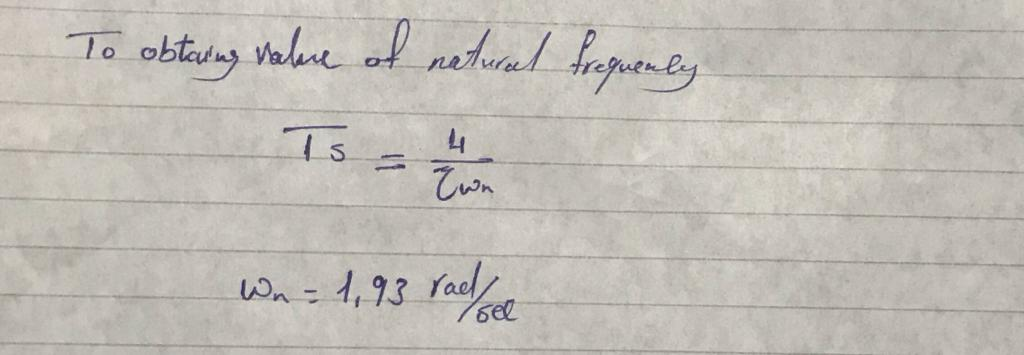 To obtaing value of natural frequency
Ts = 4 / ζωn
ωn = 1,93 rad/sec